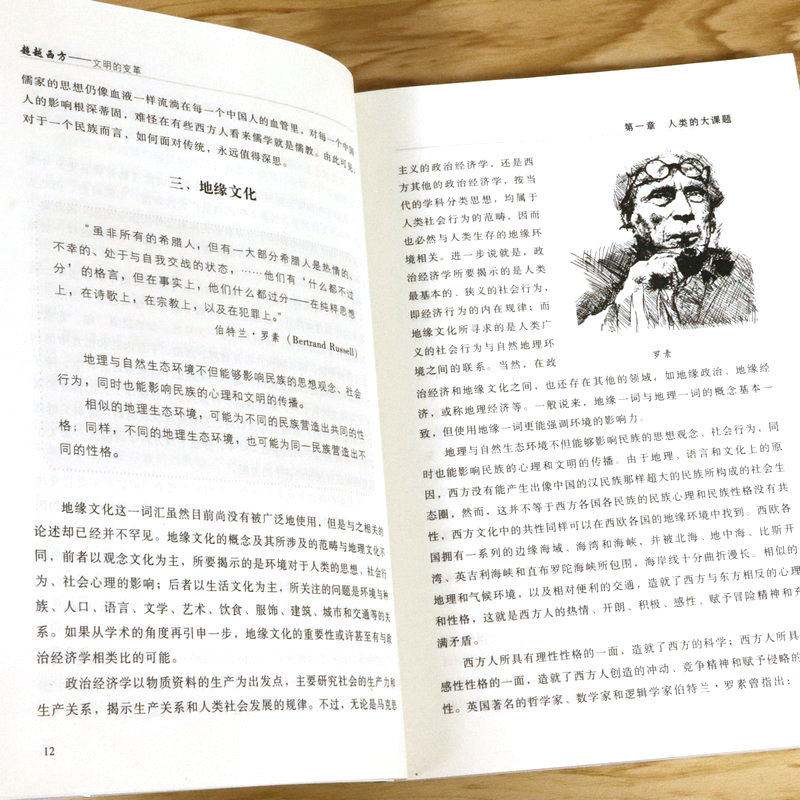 超越西方——文明的变革
儒家的思想仍像血液一样流淌在每一个中国人的血管里，对每一个中国
人的影响根深蒂固，难怪在有些西方人看来儒学就是儒教。由此可见，
对于一个民族而言，如何面对传统，永远值得深思。
三、地缘文化
“虽非所有的希腊人，但有一大部分希腊人是热情的、
不幸的、处于与自我交战的状态，……他们有‘什么都不过
分’的格言，但在事实上，他们什么都过分——在纯粹思想
上，在诗歌上，在宗教上，以及在犯罪上。”
伯特兰·罗素（Bertrand Russell）
地理与自然生态环境不但能够影响民族的思想观念、社会
行为，同时也能影响民族的心理和文明的传播。
相似的地理生态环境，可能为不同的民族营造出共同的性
格；同样，不同的地理生态环境，也可能为同一民族营造出不
同的性格。
地缘文化这一词汇虽然目前尚没有被广泛地使用，但是与之相关的
论述却已经并不罕见。地缘文化的概念及其所涉及的范畴与地理文化不
同，前者以观念文化为主，所要揭示的是环境对于人类的思想、社会行
为、社会心理的影响；后者以生活文化为主，所关注的问题是环境与种
族、人口、语言、文学、艺术、饮食、服饰、建筑、城市和交通等的关
系。如果从学术的角度再引申一步，地缘文化的重要性或许甚至有与政
治经济学相类比的可能。
政治经济学以物质资料的生产为出发点，主要研究社会的生产力和
生产关系，揭示生产关系和人类社会发展的规律。不过，无论是马克思
12
第一章 人类的大课题
主义的政治经济学，还是西
方其他的政治经济学，按当
代的学科分类思想，均属于
人类社会行为的范畴，因而
也必然与人类生存的地缘环
境相关。进一步说就是，政
治经济学所要揭示的是人类
最基本的、狭义的社会行为，
即经济行为的内在规律；而
地缘文化所寻求的是人类广
义的社会行为与自然地理环
境之间的联系。当然，在政
罗素
治经济和地缘文化之间，也还存在其他的领域，如地缘政治、地缘经
济，或称地理经济等。一般说来，地缘一词与地理一词的概念基本一
致，但使用地缘一词更能强调环境的影响力。
地理与自然生态环境不但能够影响民族的思想观念、社会行为、同
时也能影响民族的心理和文明的传播。由于地理、语言和文化上的原
因，西方没有能产生出像中国的汉民族那样超大的民族所构成的社会生
态圈，然而，这并不等于西方各国各民族的民族心理和民族性格没有共
性，西方文化中的共性同样可以在西欧各国的地缘环境中找到。西欧各
国拥有一系列的边缘海域、海湾和海峡，并被北海、地中海、比斯开
湾、英吉利海峡和直布罗陀海峡所包围，海岸线十分曲折漫长。相似的
地理和气候环境，以及相对便利的交通，造就了西方与东方相反的心理
和性格，这就是西方人的热情、开朗、积极、感性、赋予冒险精神和充
满矛盾。
西方人所具有理性性格的一面，造就了西方的科学；西方人所
感性性格的一面，造就了西方人创造的冲动、竞争精神和赋予侵略的
性。英国著名的哲学家、数学家和逻辑学家伯特兰·罗素曾指出：